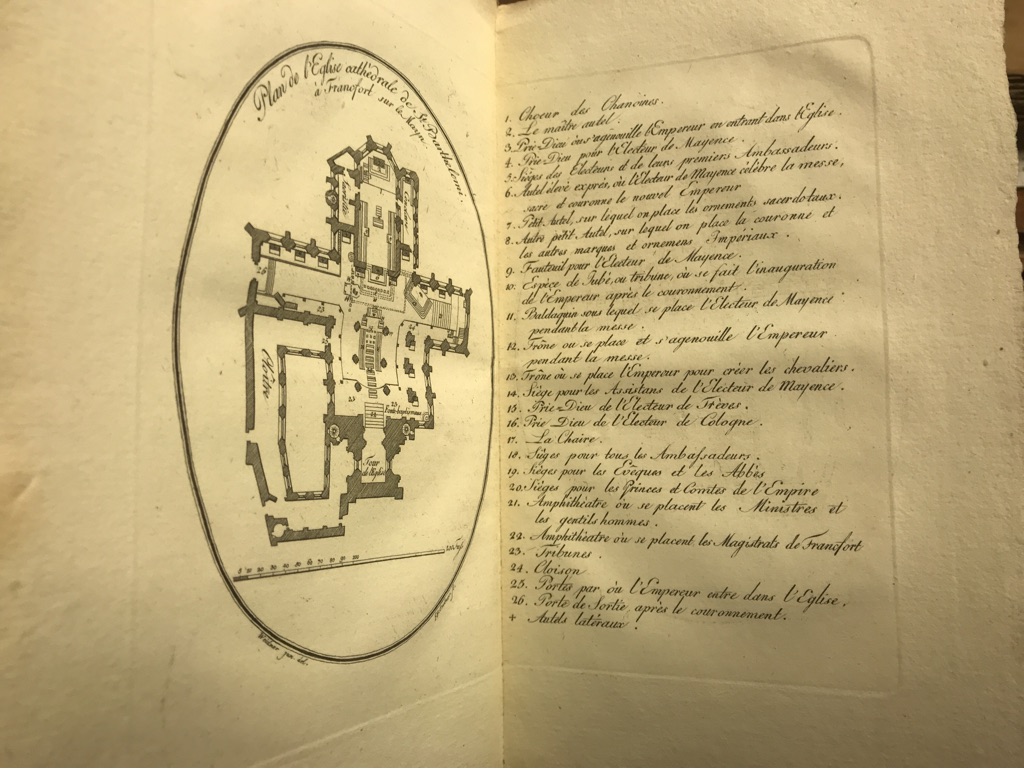 Plan de l'Eglise cathédrale de St. Barthelemi.
à Francfort sur le Meyn
Cloître
Tour
de l'Eglise
Walwert jun. del.
1. Choeur des Chanoines.
2. Le maître autel.
3. Prie-Dieu où s'agenouille l'Empereur en entrant dans l'Eglise.
4. Prie Dieu pour l'Electeur de Mayence.
5. Sièges des Electeurs et de leurs premiers Ambassadeurs.
6. Autel élevé exprès, où l'Electeur de Mayence célèbre la messe,
sacre et couronne le nouvel Empereur
7. Petit Autel, sur lequel on place les ornements sacerdotaux.
8. Autre petit Autel, sur lequel on place la couronne et
les autres marques et ornemens Impériaux.
9. Fauteuil pour l'Electeur de Mayence.
10. Espèce de Jubé, ou tribune, où se fait l'inauguration
de l'Empereur après le couronnement.
11. Baldaquin sous lequel se place l'Electeur de Mayence
pendant la messe.
12. Trône ou se place et s'agenouille l'Empereur
pendant la messe.
13. Trône où se place l'Empereur pour créer les chevaliers.
14. Siège pour les Assistans de l'Electeur de Mayence.
15. Prie-Dieu de l'Electeur de Trèves.
16. Prie Dieu de l'Electeur de Cologne.
17. La Chaire.
18. Sièges pour tous les Ambassadeurs.
19. Sièges pour les Evêques et les Abbès
20. Sièges pour les Princes et Comtes de l'Empire
21. Amphithèatre où se placent les Ministres et
les gentilshommes.
22. Amphithèatre où se placent les Magistrats de Francfort
23. Tribunes.
24. Cloison
25. Portes par où l'Empereur entre dans l'Eglise.
26. Porte de Sortie après le couronnement.
+ Autels latéraux.